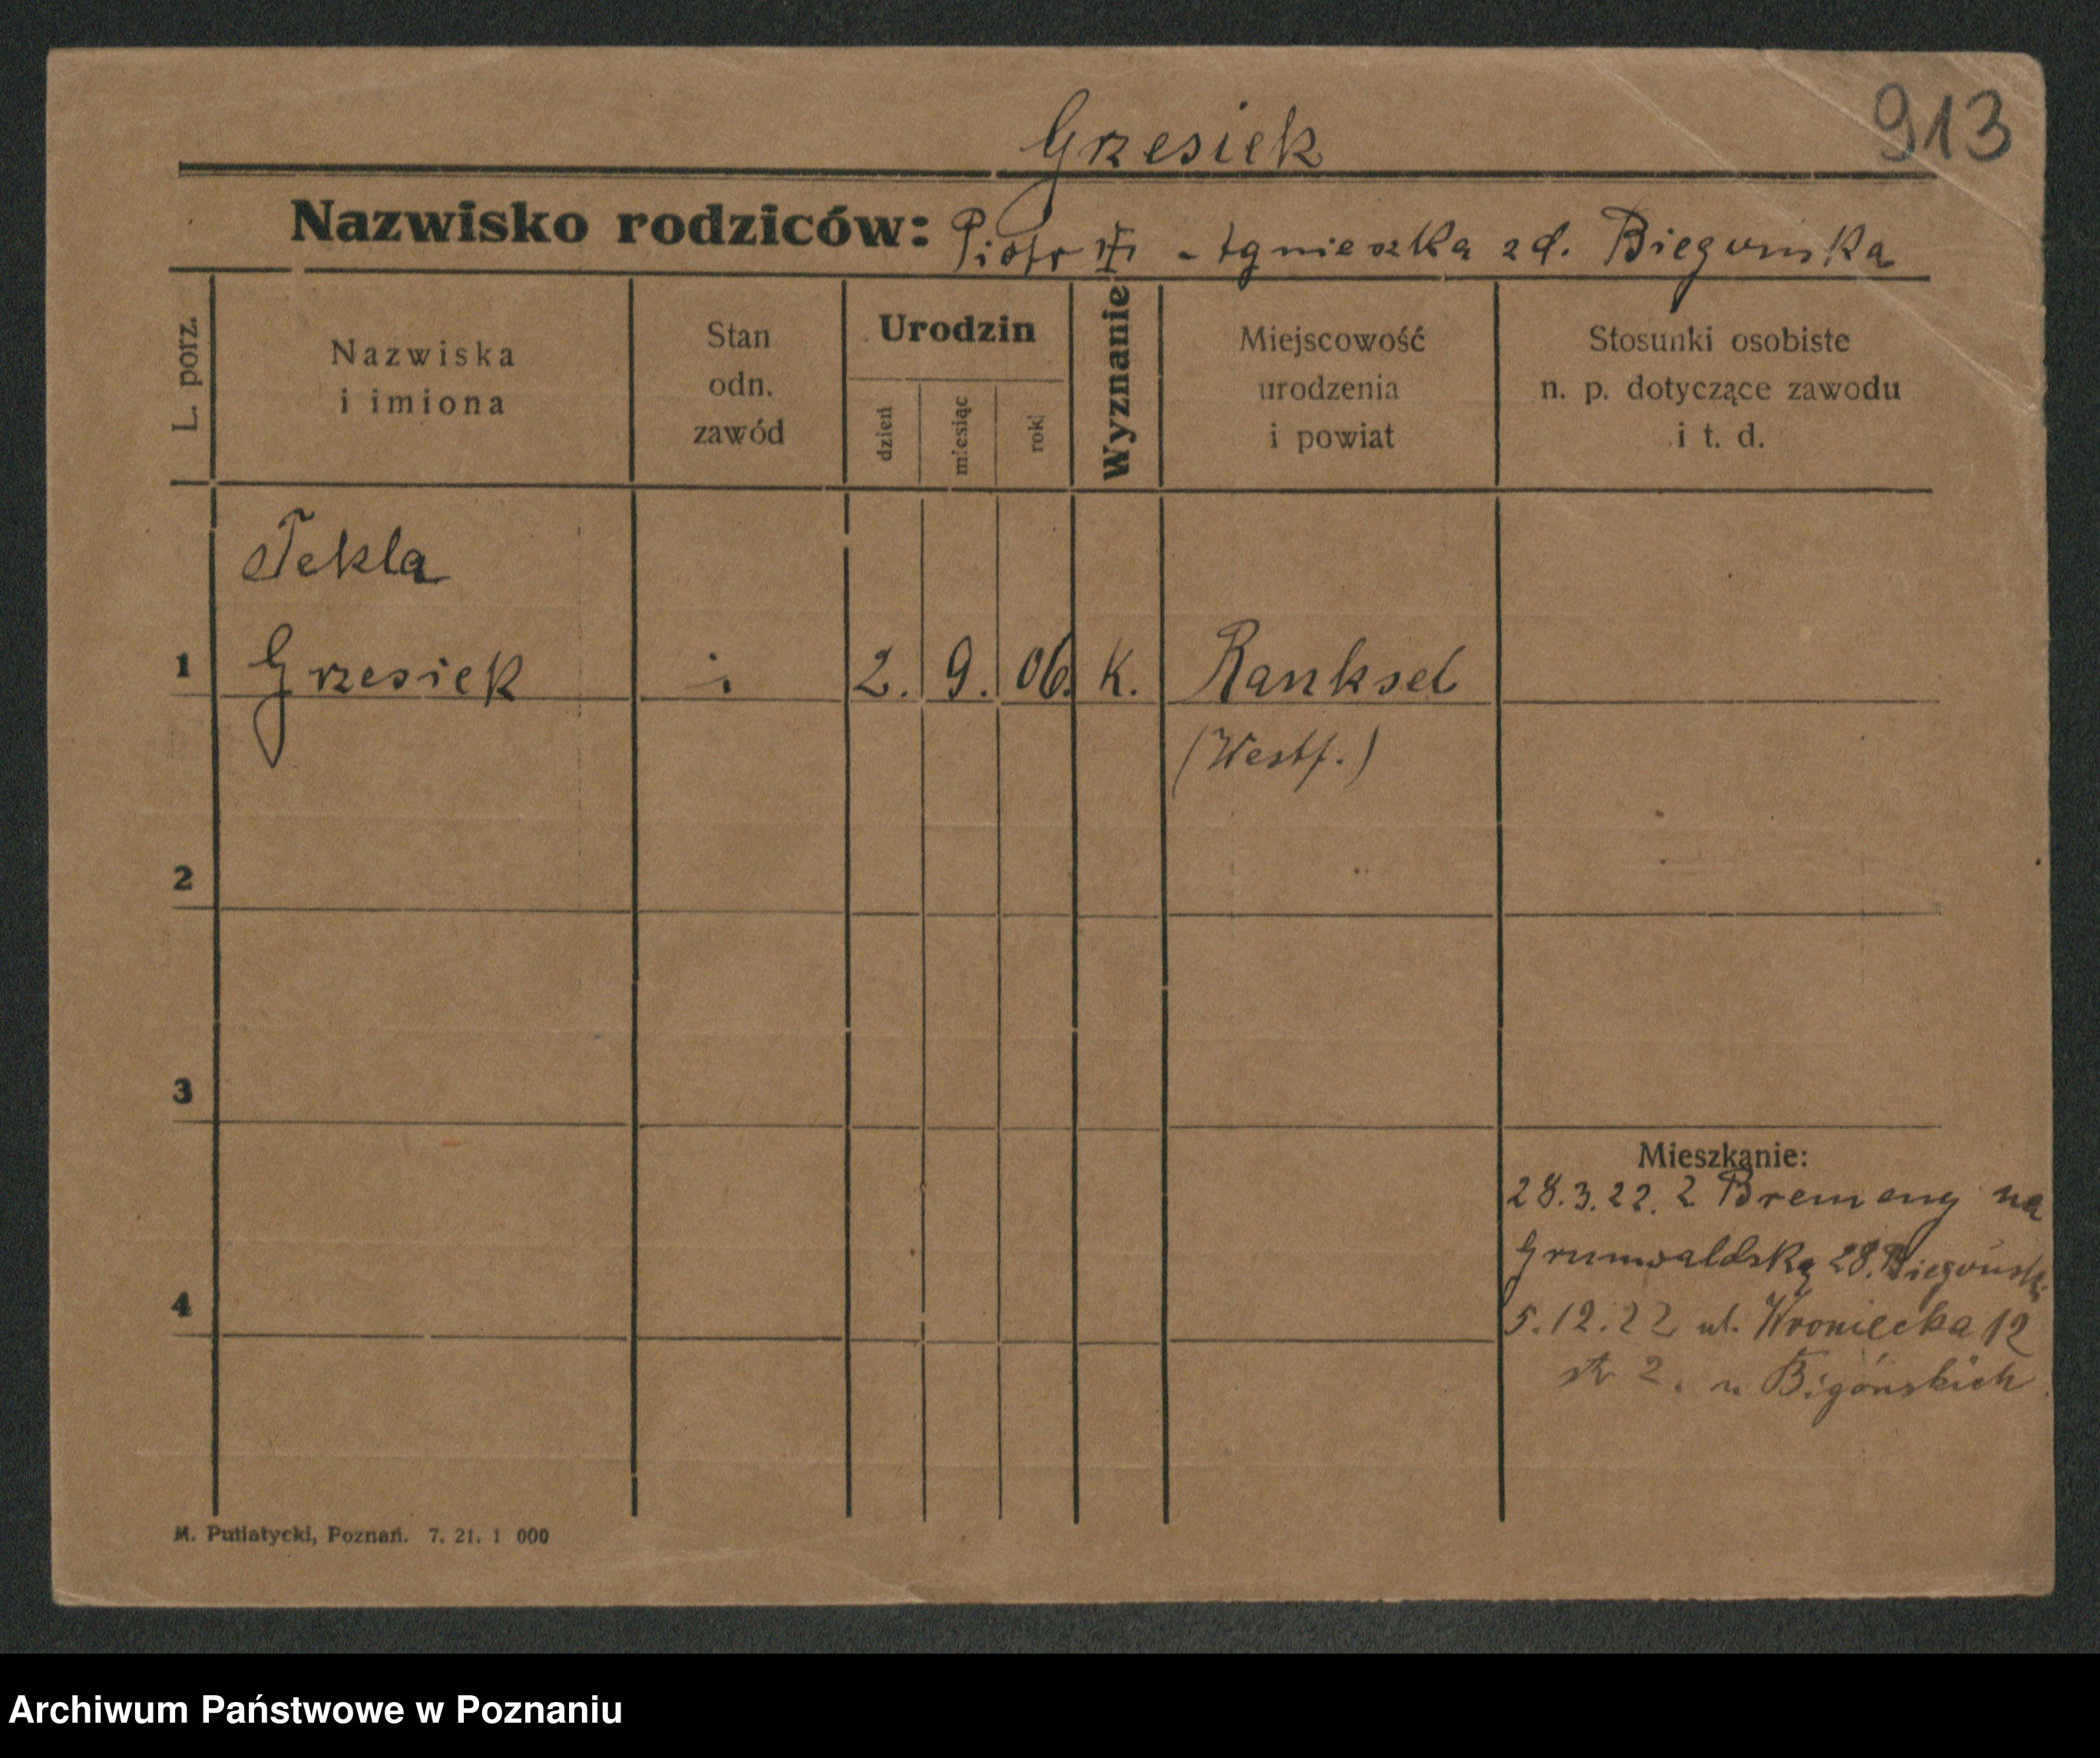 913
Grzesiek
Nazwisko rodziców: Piotr - Agnieszka zd. Biegońska
L. porz.
Nazwiska
i imiona
Stan
odn.
zawód
Urodzin
dzień
miesiąc
rok
Wyznanie
Miejscowość
urodzenia
i powiat
Stosunki osobiste
n. p. dotyczące zawodu
i t. d.
Tekla
1 Grzesiek 2. 9. 06. K. Ranksel
(Westf.)
2
3
Mieszkanie:
28.3.22. z Bremany na
Grunwaldską 28. Biegoński
4
5.12.22 ul. Wroniecka 12
2. u Bigońskich
M. Putiatycki, Poznań. 7. 21. 1 000
Archiwum Państwowe w Poznaniu